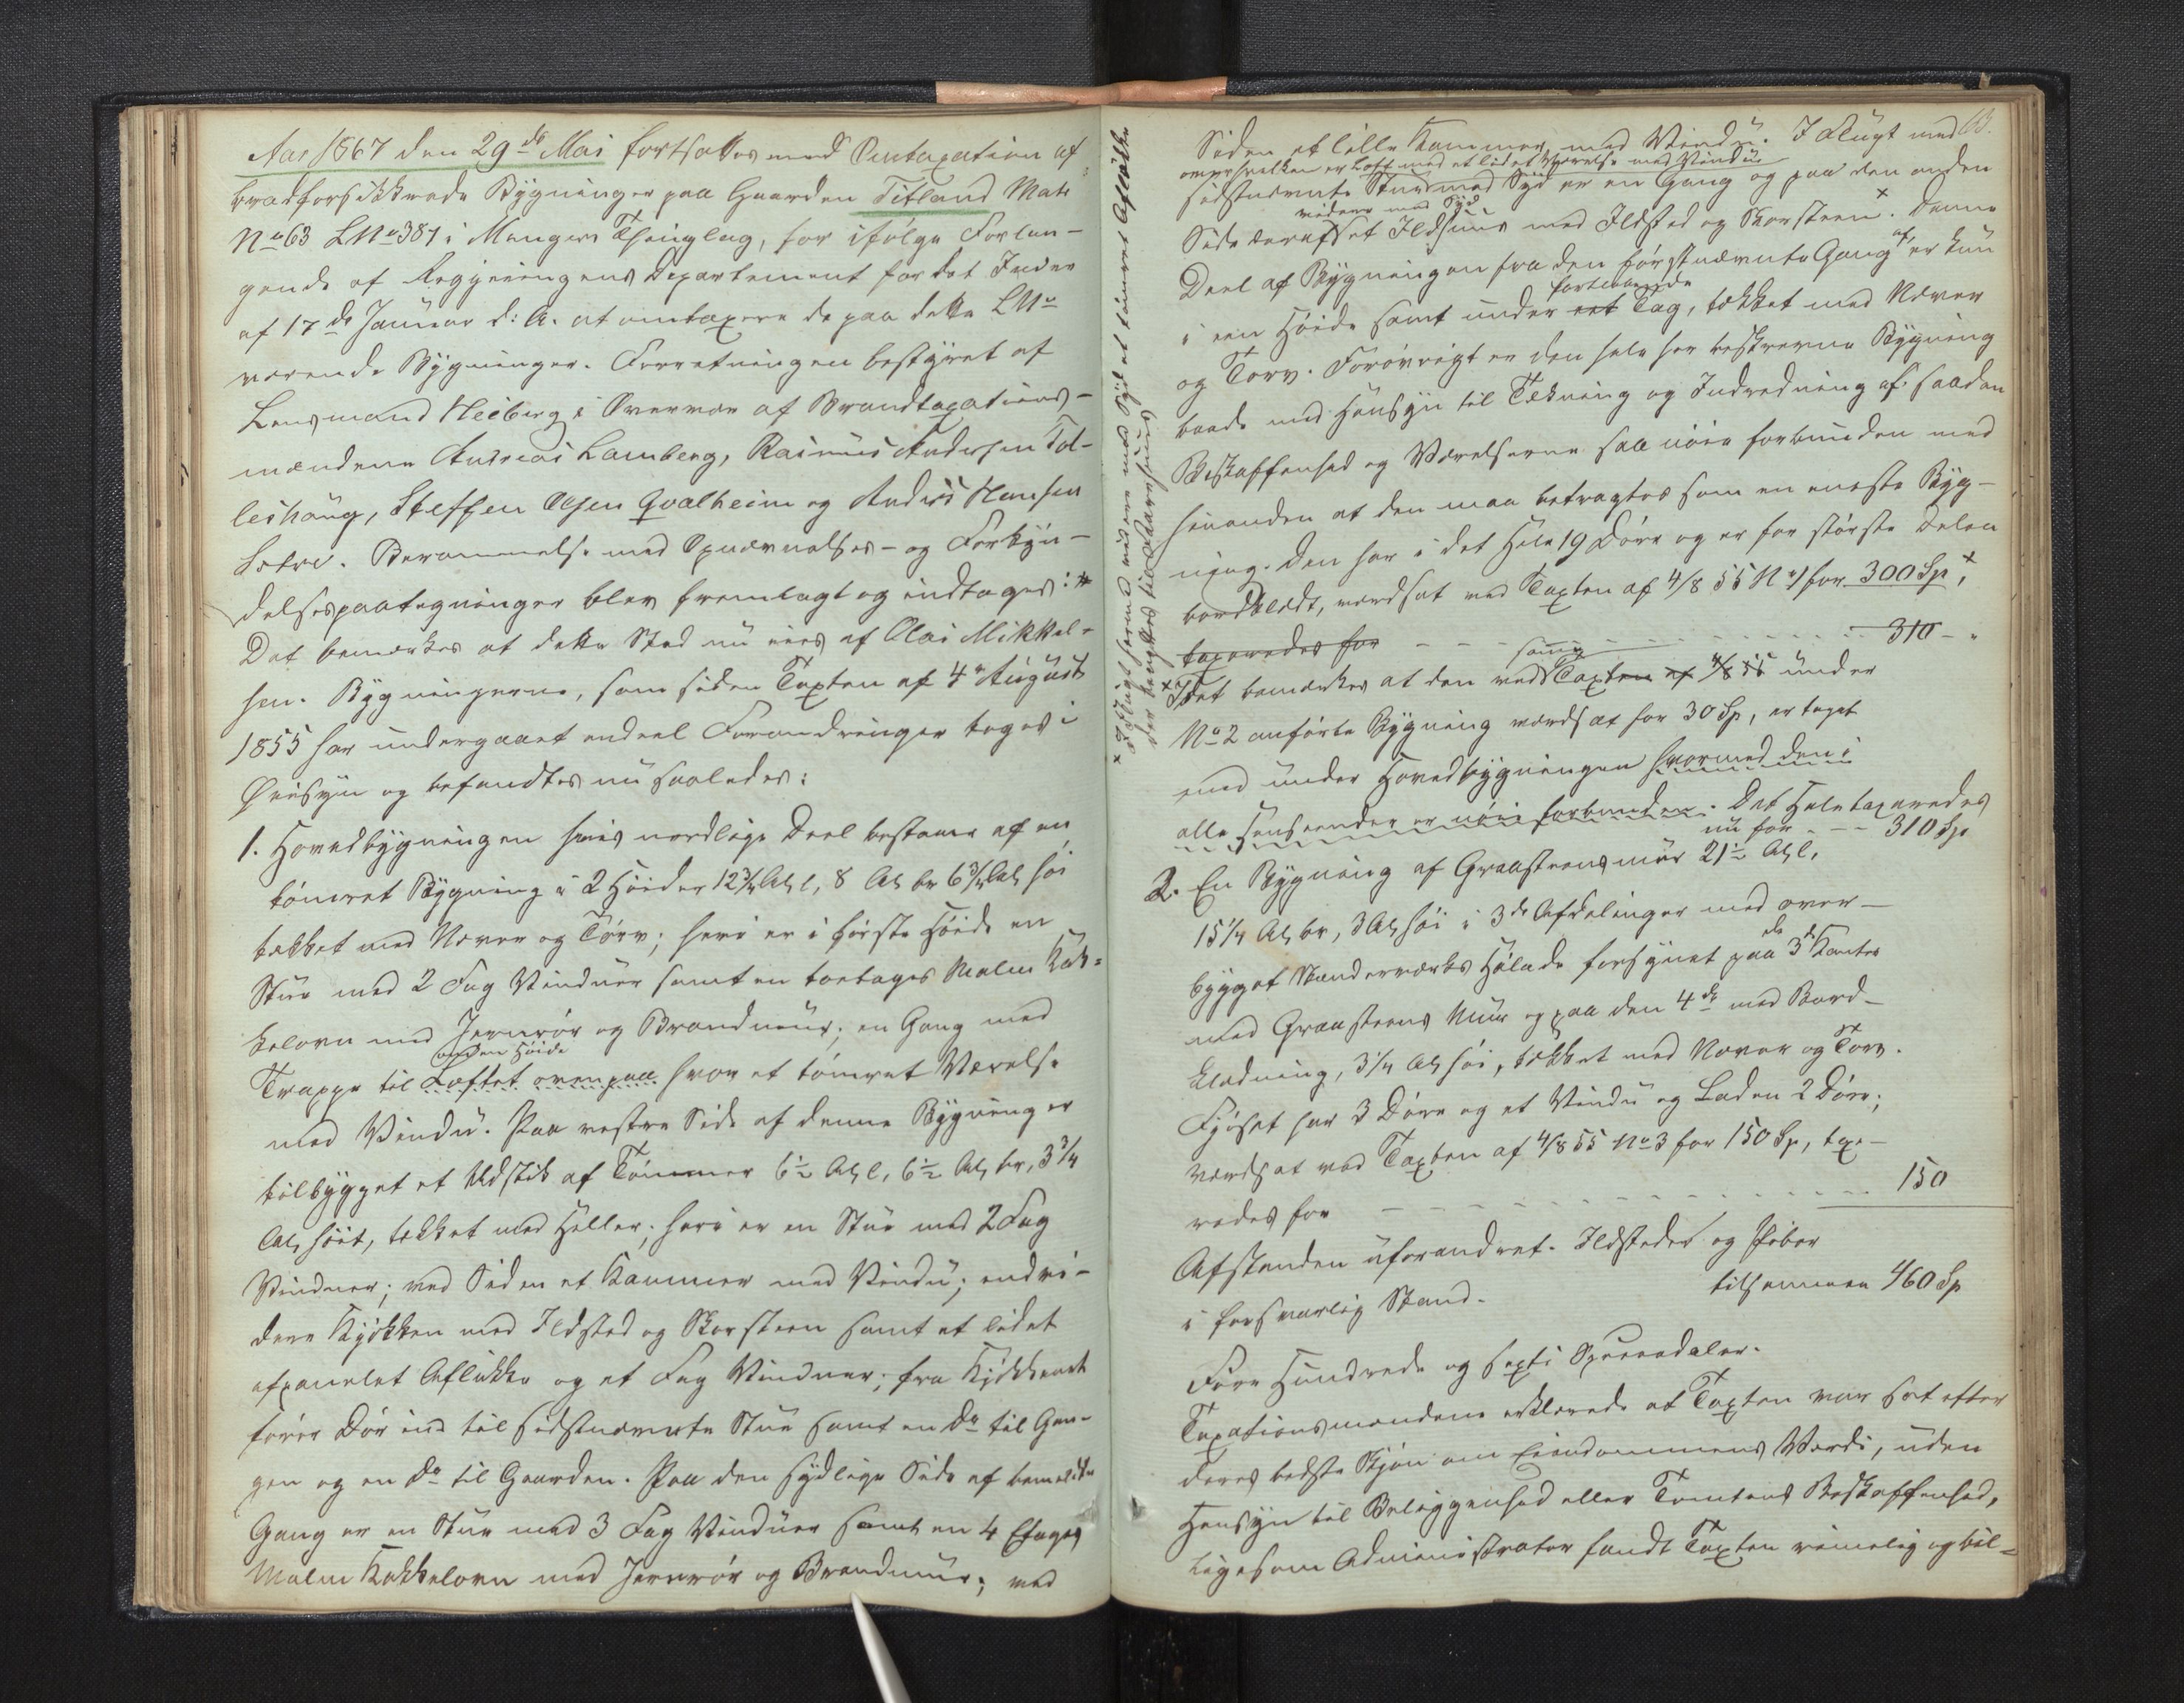 Aar 1867 den 29de Mai fortsattes med Omtaxation af
brandforsikkrede Bygninger paa Gaarden Titland Matr
No 63 LNo 387 i Mangers Thinglag, for ifølge Forlan-
gende af Regjeringens Departement for det Indre
af 17de Januar d: A. at omtaxere de paa dette LNo
værende Bygninger. Forretningen bestyret af
Lensmand Heiberg i Overvær af Brandtaxations-
mændene Andreas Lamberg, Rasmus Andersen Tol-
leshaug, Steffen Olsen Qvalheim og Anders Hansen
. Berammelse med Opnævnelses- og Forkyn-
delsespaategninger blev fremlagt og indtages: *
Det bemærkes at dette Sted nu eies af Olai Mikkel-
sen. Bygningerne, som siden Taxten af 4de August
1855 har undergaaet endeel Forandringer toges i
Øiesyn og befandtes nu saaledes:
1. Hovedbygningen hvis nordlige Deel bestaaer af en
tømret Bygning i 2 Høider 12¾ Al l, 8 Al br 6¾ Al høi
tækket med Næver og Tørv; heri er i første Høide en
Stue med 2 Fag Vinduer samt en toetages Malm Kak-
kelovn med Jernrør og Brandmuur; en Gang med
anden Høide
Trappe til Loftet ovenpaa hvor et tømret Værelse
med Vindu. Paa vestre Side af denne Bygning er
tilbygget et Udstik af Tømmer 6½ Al l, 6½ Al br, 3¾
Al høit, tækket med Heller; heri er en Stue med 2 Fag
Vinduer; ved Siden et Kammer med Vindu; endvi-
dere Kjøkken med Ildsted og Skorsteen samt et lidet
afpanelet Aflukke og et Fag Vinduer; fra Kjøkkenet
fører Dør ind til sidstnævnte Stue samt en do til Gan-
gen og en do til Gaarden. Paa den sydlige Side af bemeldte
Gang er en Stue med 3 Fag Vinduer samt en 4 Etages
Malm Kakkelovn med Jernrør og Brandmuur; ved
× I Flugt hermed videre mod Syd et tømret Aflukke
der benyttes til
Siden et lille Kammer med Vindu. I Flugt med
over hvilken er Loft med et lidet Værelse med Vindu
sidstnævnte Stue mod Syd er en Gang og paa den anden
videre mod Syd
Side deraf et Ildhuus med Ildsted og Skorsteen ×. Denne
Deel af Bygningen fra den førstnævnte Gang af, er kun
fortløbende
i een Høide samt under eet Tag, tækket med Næver
og Torv. Forøvrigt er den hele her beskrevne Bygning
baade med Hensyn til Tækning og Indredning af saadan
Beskaffenhed og Værelserne saa nøie forbunden med
hinanden at den maa betragtes som en eneste Byg-
ning. Den har i det Hele 19 Døre og er for største Delen
bordklædt, værdsat ved Taxten af 4/8 55 No 1 for 300 Sp, ×
taxeredes for - - - 310 -
samme
× Idet bemærkes at den ved Taxten af 4/8 55 under
No 2 anførte Bygning værdsat for 30 Sp, er taget
med under Hovedbygningen hvormed den i
alle Henseender er nøie forbunden. Det Hele taxeredes
nu for - - - 310 Sp
2. En Bygning af Graasteensmuur 21½ Al l,
15¼ Al br, 3 Al høi i 3de Afdelinger med over-
bygget Stænderværks Hølade forsynet paa de 3de Kanter
med Graasteens Muur og paa den 4de med Bord-
klædning, 3¼ Al høi, tækket med Næver og Torv.
Fjøset har 3 Døre og et Vindu og Laden 2 Døre;
værdsat ved Taxten af 4/8 55 No 3 for 150 Sp, taxe-
redes for - - - 150
Afstanden uforandret. Ildsteder og Piber
i forsvarlig Stand. tilsammen 460 Sp
Fire Hundrede og sexti Speciedaler.
Taxationsmændene erklærede at Taxten var sat efter
deres bedste Skjøn om Eiendommens Værdi, uden
Hensyn til Beliggenhed eller Tomtens Beskaffenhed,
ligesom Administrator fandt Taxten rimelig og bil-